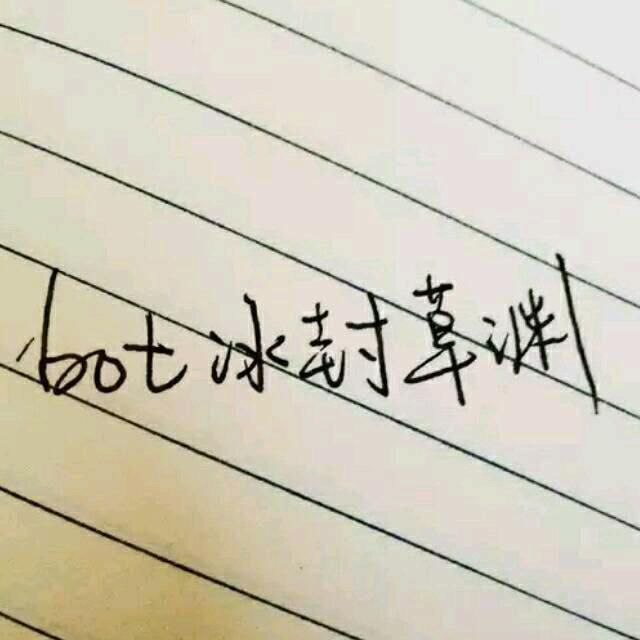 bot冰封草渊